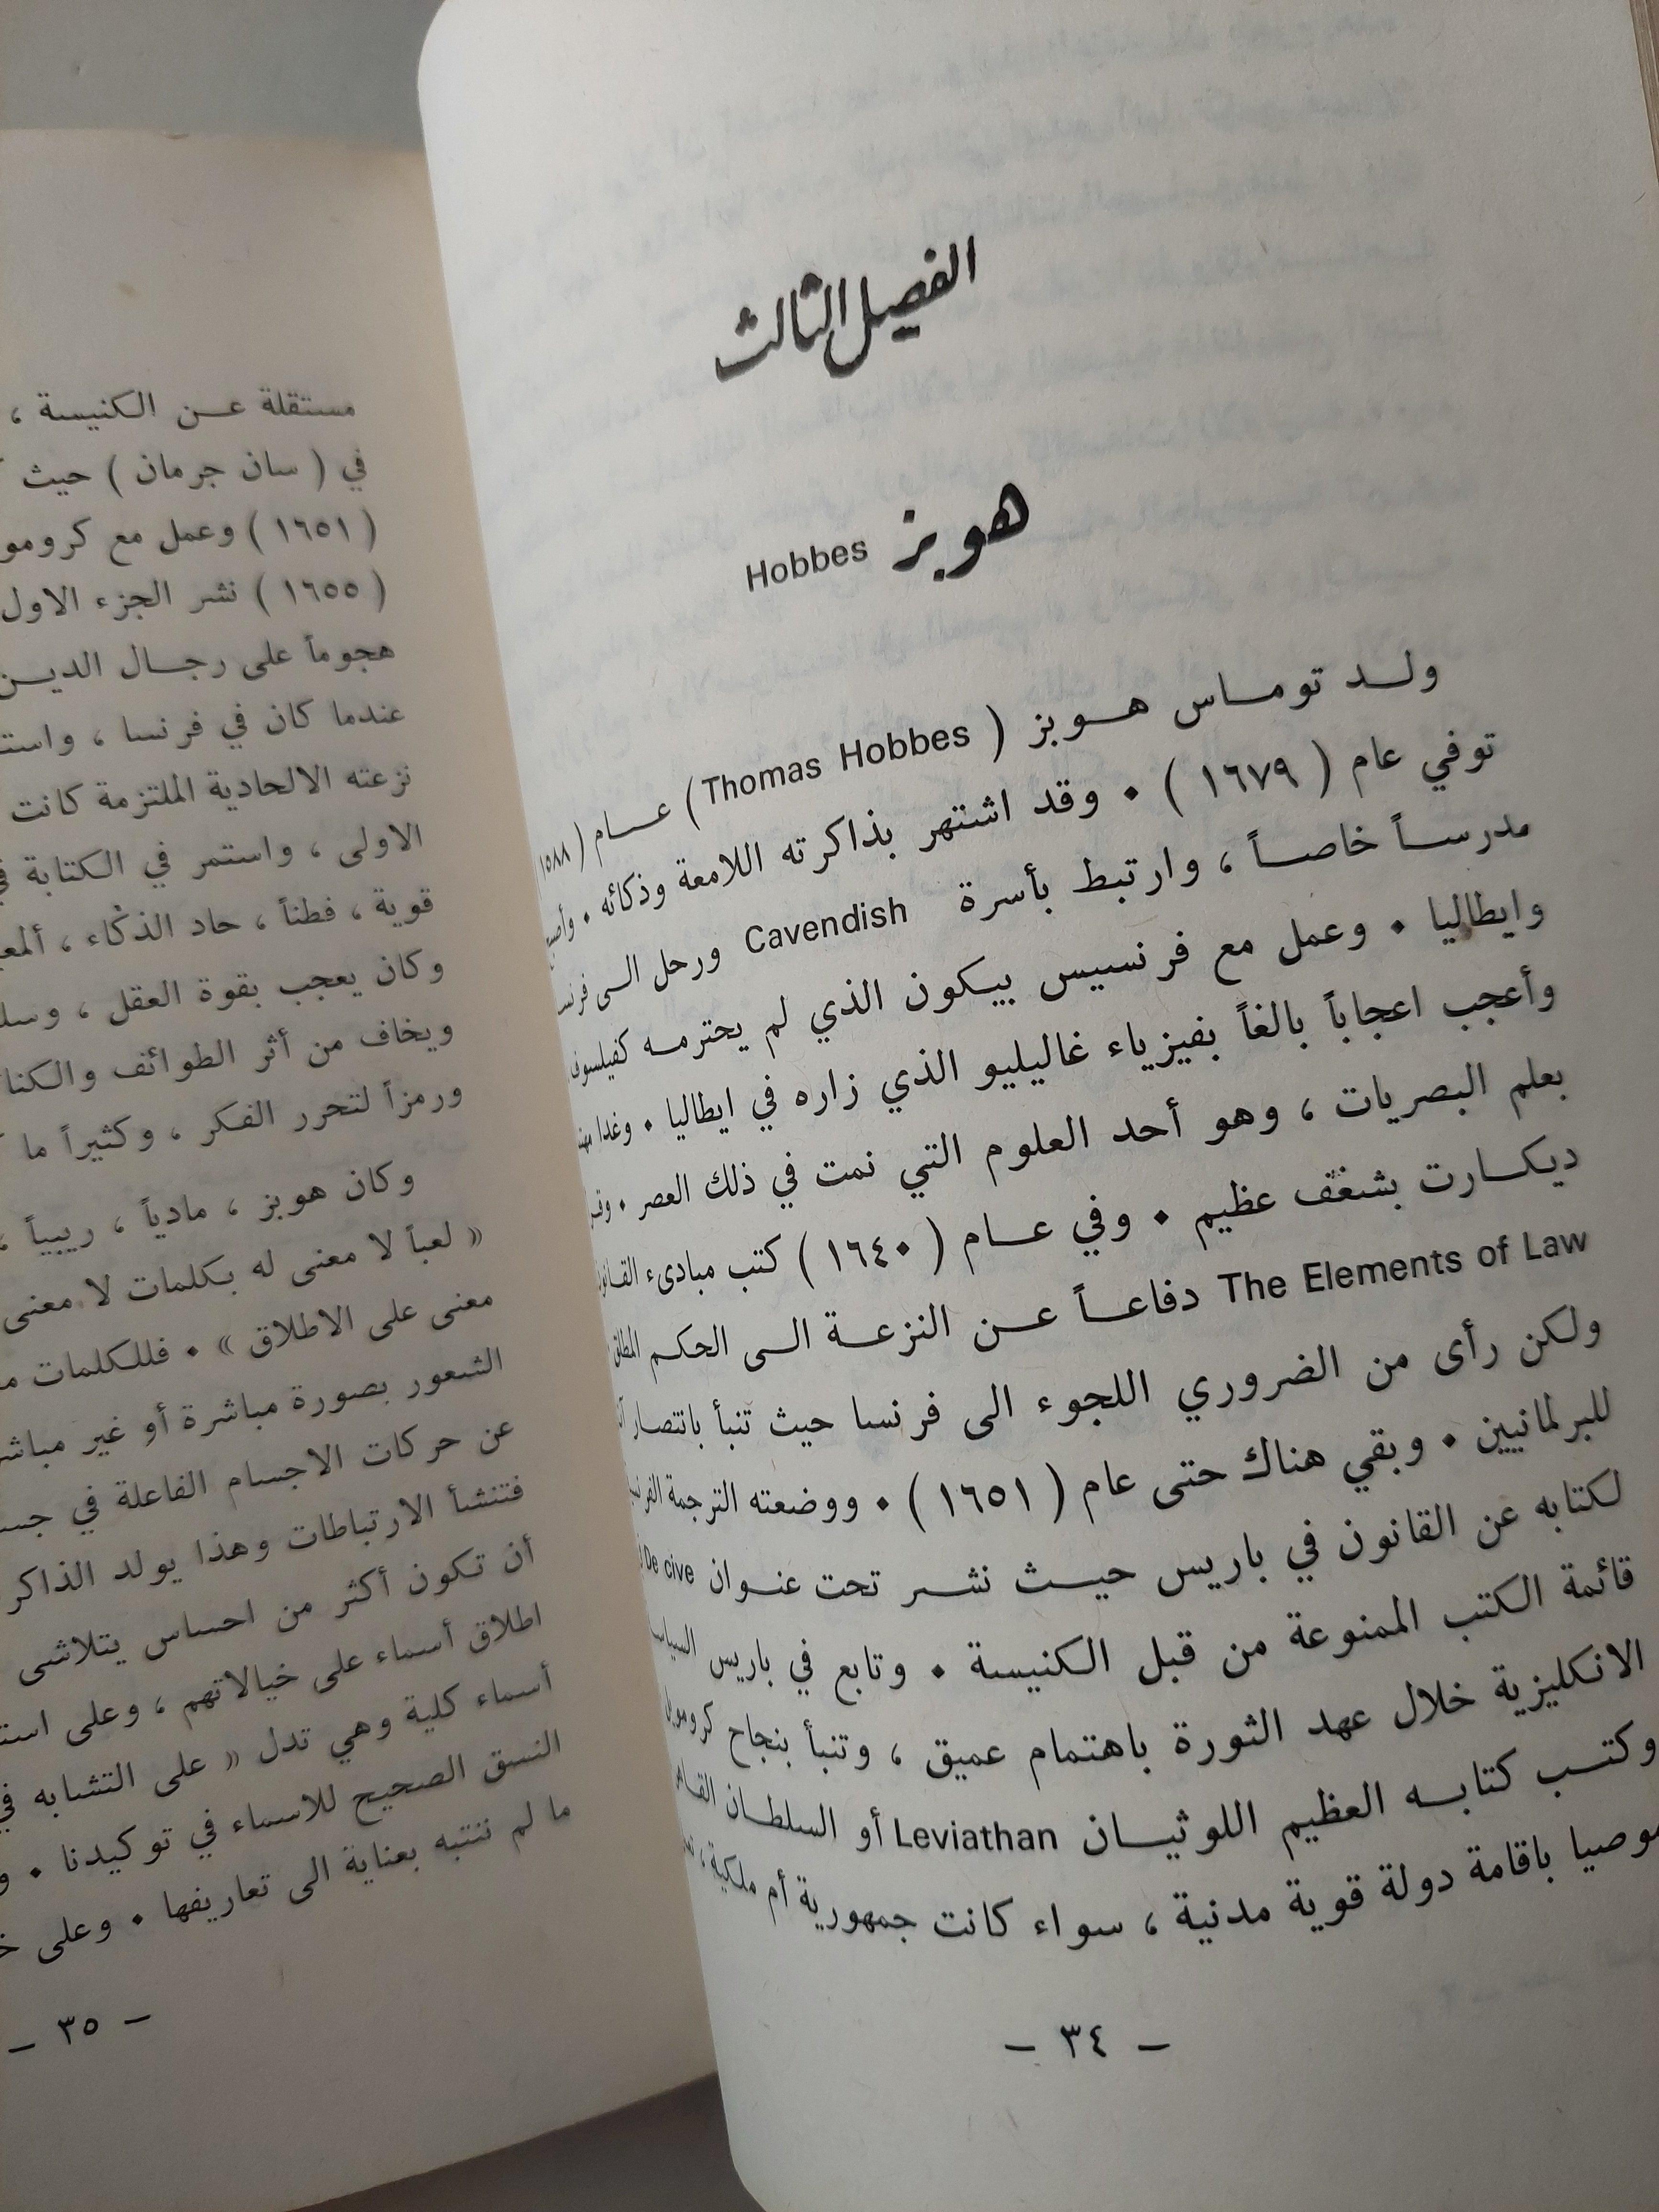 الفصل الثالث
هوبز Hobbes
ولـد تومـاس هـوبز ( Thomas Hobbes ) عـام ( ١٥٨٨
توفي عام ( ١٦٧٩ ) ٠ وقد اشتهر بذاكرته اللامعة وذكائه ٠
مدرسـاً خاصـاً ، وارتبط بأسرة Cavendish ورحل الـى
وايطاليا ٠ وعمل مع فرنسيس بيـكون الذي لم يحترمـه
وأعجب اعجاباً بالغاً بفيزياء غاليليو الذي زاره في ايطاليا ٠ وغدا
بعلم البصريات ، وهو أحد العلوم التي نمت في ذلك العصر ٠
ديكـارت بشغف عظيم ٠ وفي عـام ( ١٦٤٠ ) كتب مبادىء
The Elements of Law دفاعـاً عـن النزعـة الـى الحكـم
ولكن رأى من الضروري اللجوء الى فرنسا حيث تنبأ بانتصـار
للبرلمانيين ٠ وبقي هناك حتى عام ( ١٦٥١ ) ٠ ووضعته الترجمة
لكتابه عن القانون في باريس حيـث نشـر تحت عنـوان De cive
قائمة الكتب الممنوعة من قبل الكنيسة ٠ وتابع في باريس
الانكليزية خلال عهد الثورة باهتمام عميق ، وتنبأ بنجاح
وكتـب كتابـه العظيم اللوثيـان Leviathan أو السلطـان
موصيا باقامة دولة قوية مدنية ، سواء كانت جمهورية أم ملكية ،
– ٣٤ –
مستقلة عـن الكنيسة ،
في ( سان جرمان ) حيث
( ١٦٥١ ) وعمل مع
( ١٦٥٥ ) نشر الجزء الاول
هجوماً على رجـال الديـن
عندما كان في فرنسا ،
نزعته الالحادية الملتزمة كانت
الاولى ، واستمر في الكتابة
قوية ، فطناً ، حاد الذكاء ،
وكان يعجب بقوة العقل ،
ويخاف من أثر الطوائف
ورمزاً لتحرر الفكر ، وكثيراً ما
وكان هوبز ، مادياً ، ريبياً ،
« لعباً لا معنى له بكلمات لا معنى
معنى على الاطلاق » ٠ فللكلمات
الشعور بصورة مباشرة أو غير
عن حركات الاجسام الفاعلة في
فتنشأ الارتباطات وهذا يولد
أن تكون أكثر من احساس يتلاشى
اطلاق أسماء على خيالاتهم ، وعلى
أسماء كلية وهي تدل « على التشابه
النسق الصحيح للاسماء في توكيدنا ٠
ما لم ننتبه بعناية الى تعاريفها ٠ وعلى
– ٣٥ –